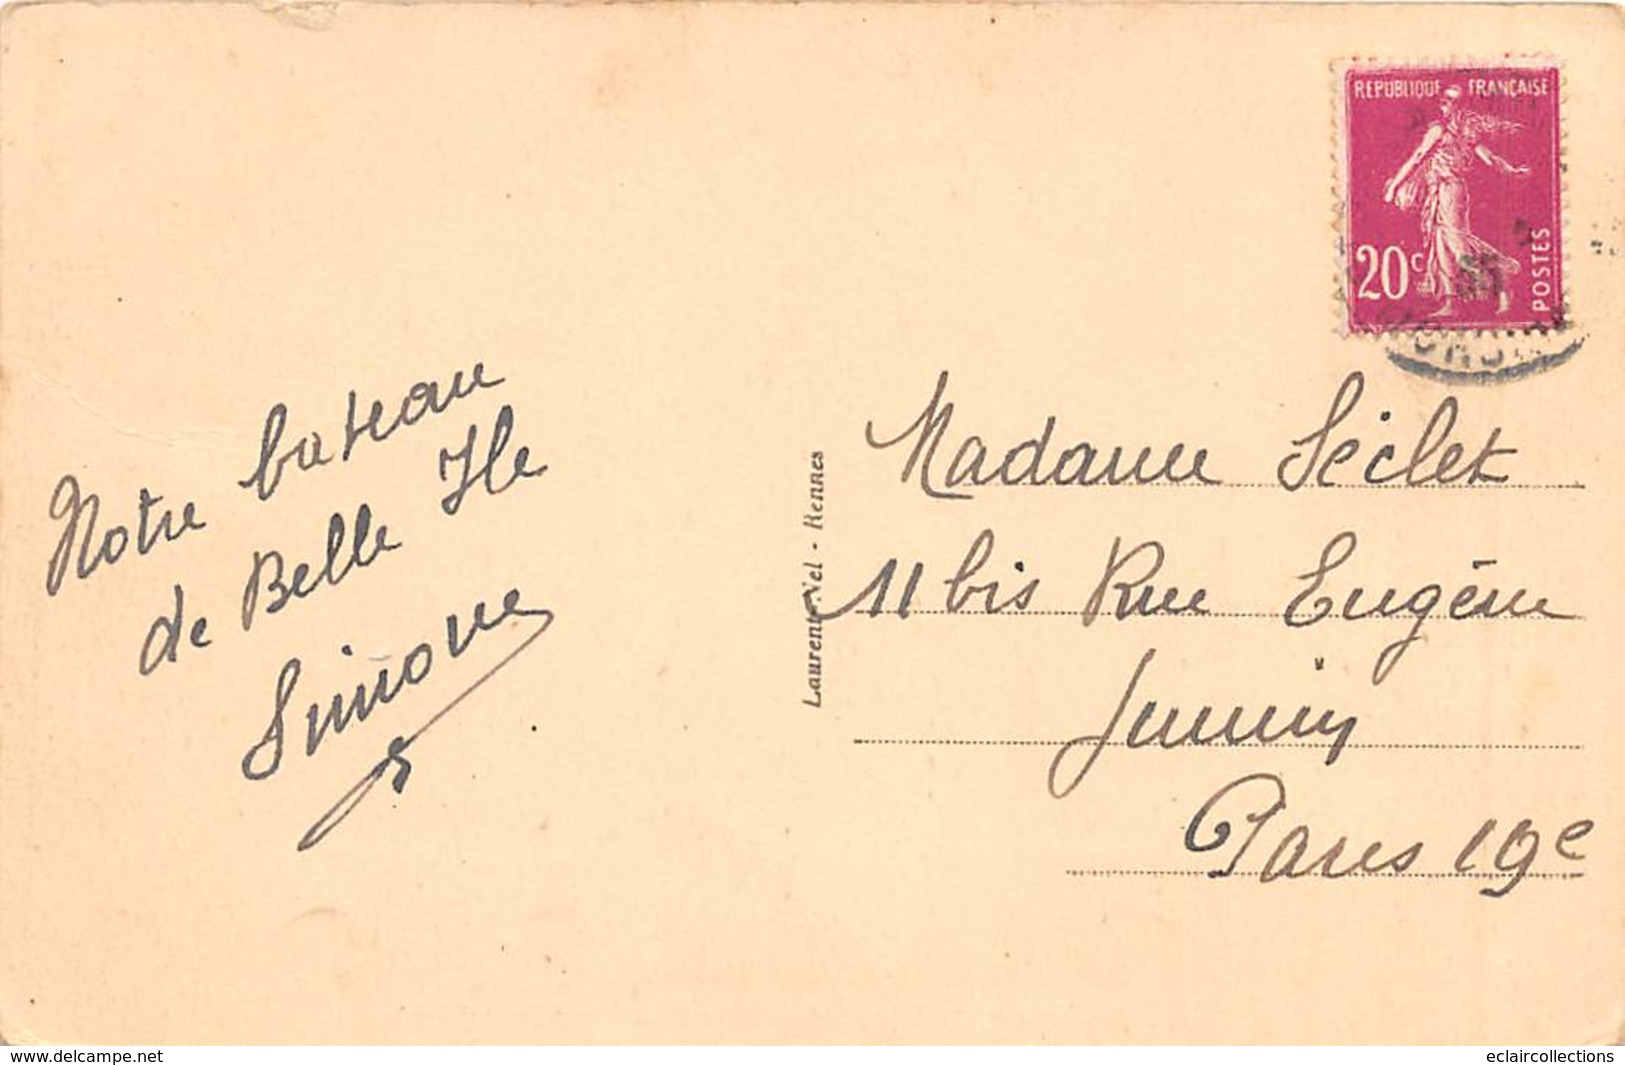 REPUBLIQUE FRANÇAISE
20c
POSTES
Notre bateau
de Belle Ile
Simone
Laurent-Nel - Rennes
Madame Séclet
11 bis Rue Eugène
Jumin
Paris 19e
www.delcampe.net
eclaircollections